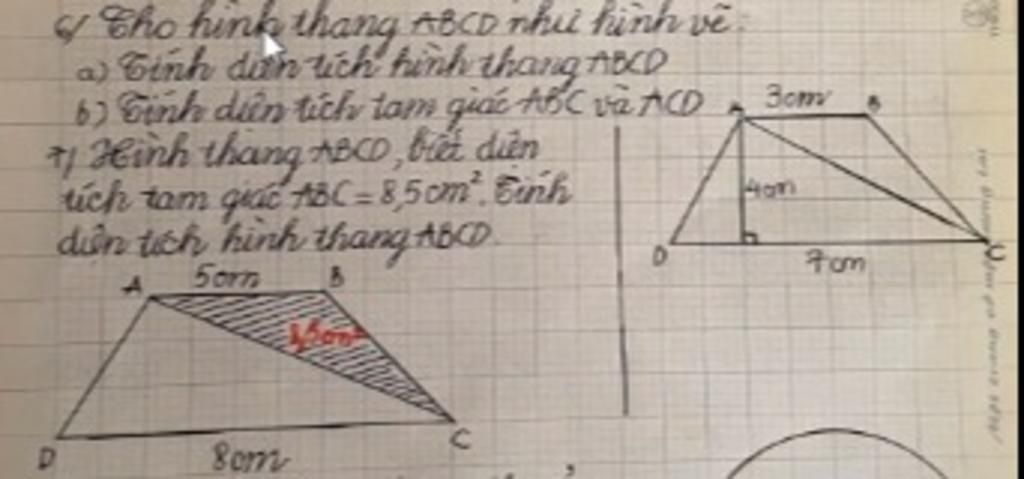 6) Cho hình thang ABCD như hình vẽ.
a) Tính diện tích hình thang ABCD
b) Tính diện tích tam giác ABC và ACD
7) Hình thang ABCD, biết diện
tích tam giác ABC = 8,5cm². Tính
diện tích hình thang ABCD.
A 3cm B
4cm
D 7cm C
A 5cm B
8,5cm²
D 8cm C